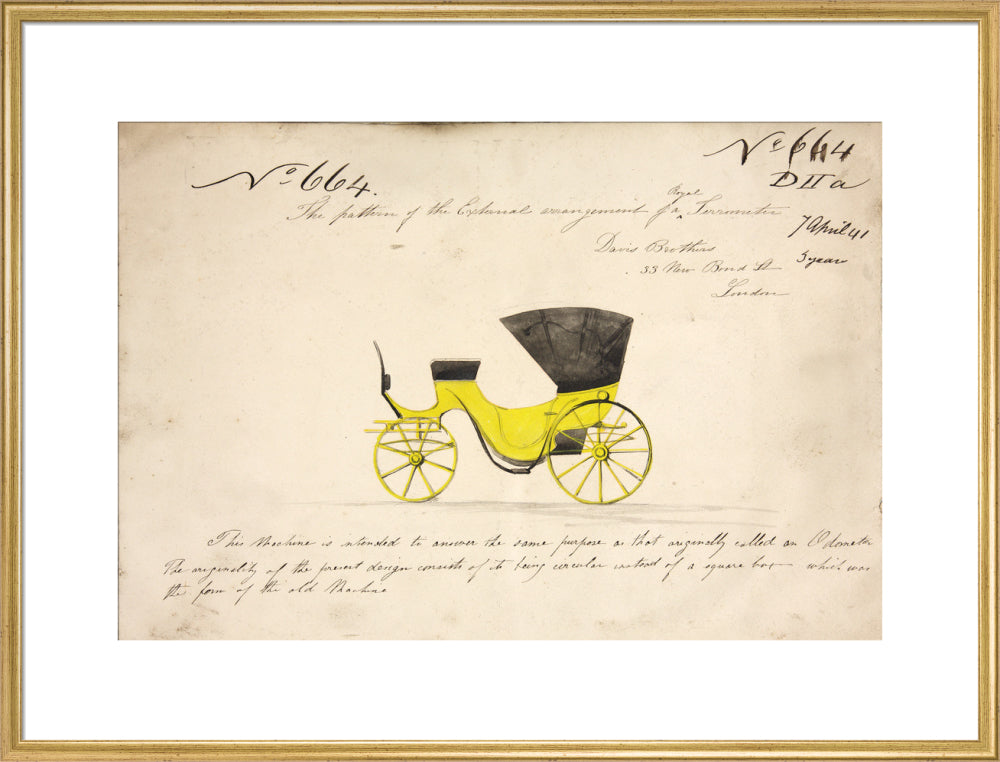 No 664
D II a
No 664.
The pattern of the External arrangement of a Royal Terrometer
7 April 41
3 year
Davis Brothers
33 New Bond St
London
This Machine is intended to answer the same purpose as that originally called an Odometer
The originality of the present design consists of its being circular instead of a square box which was
the form of the old Machine